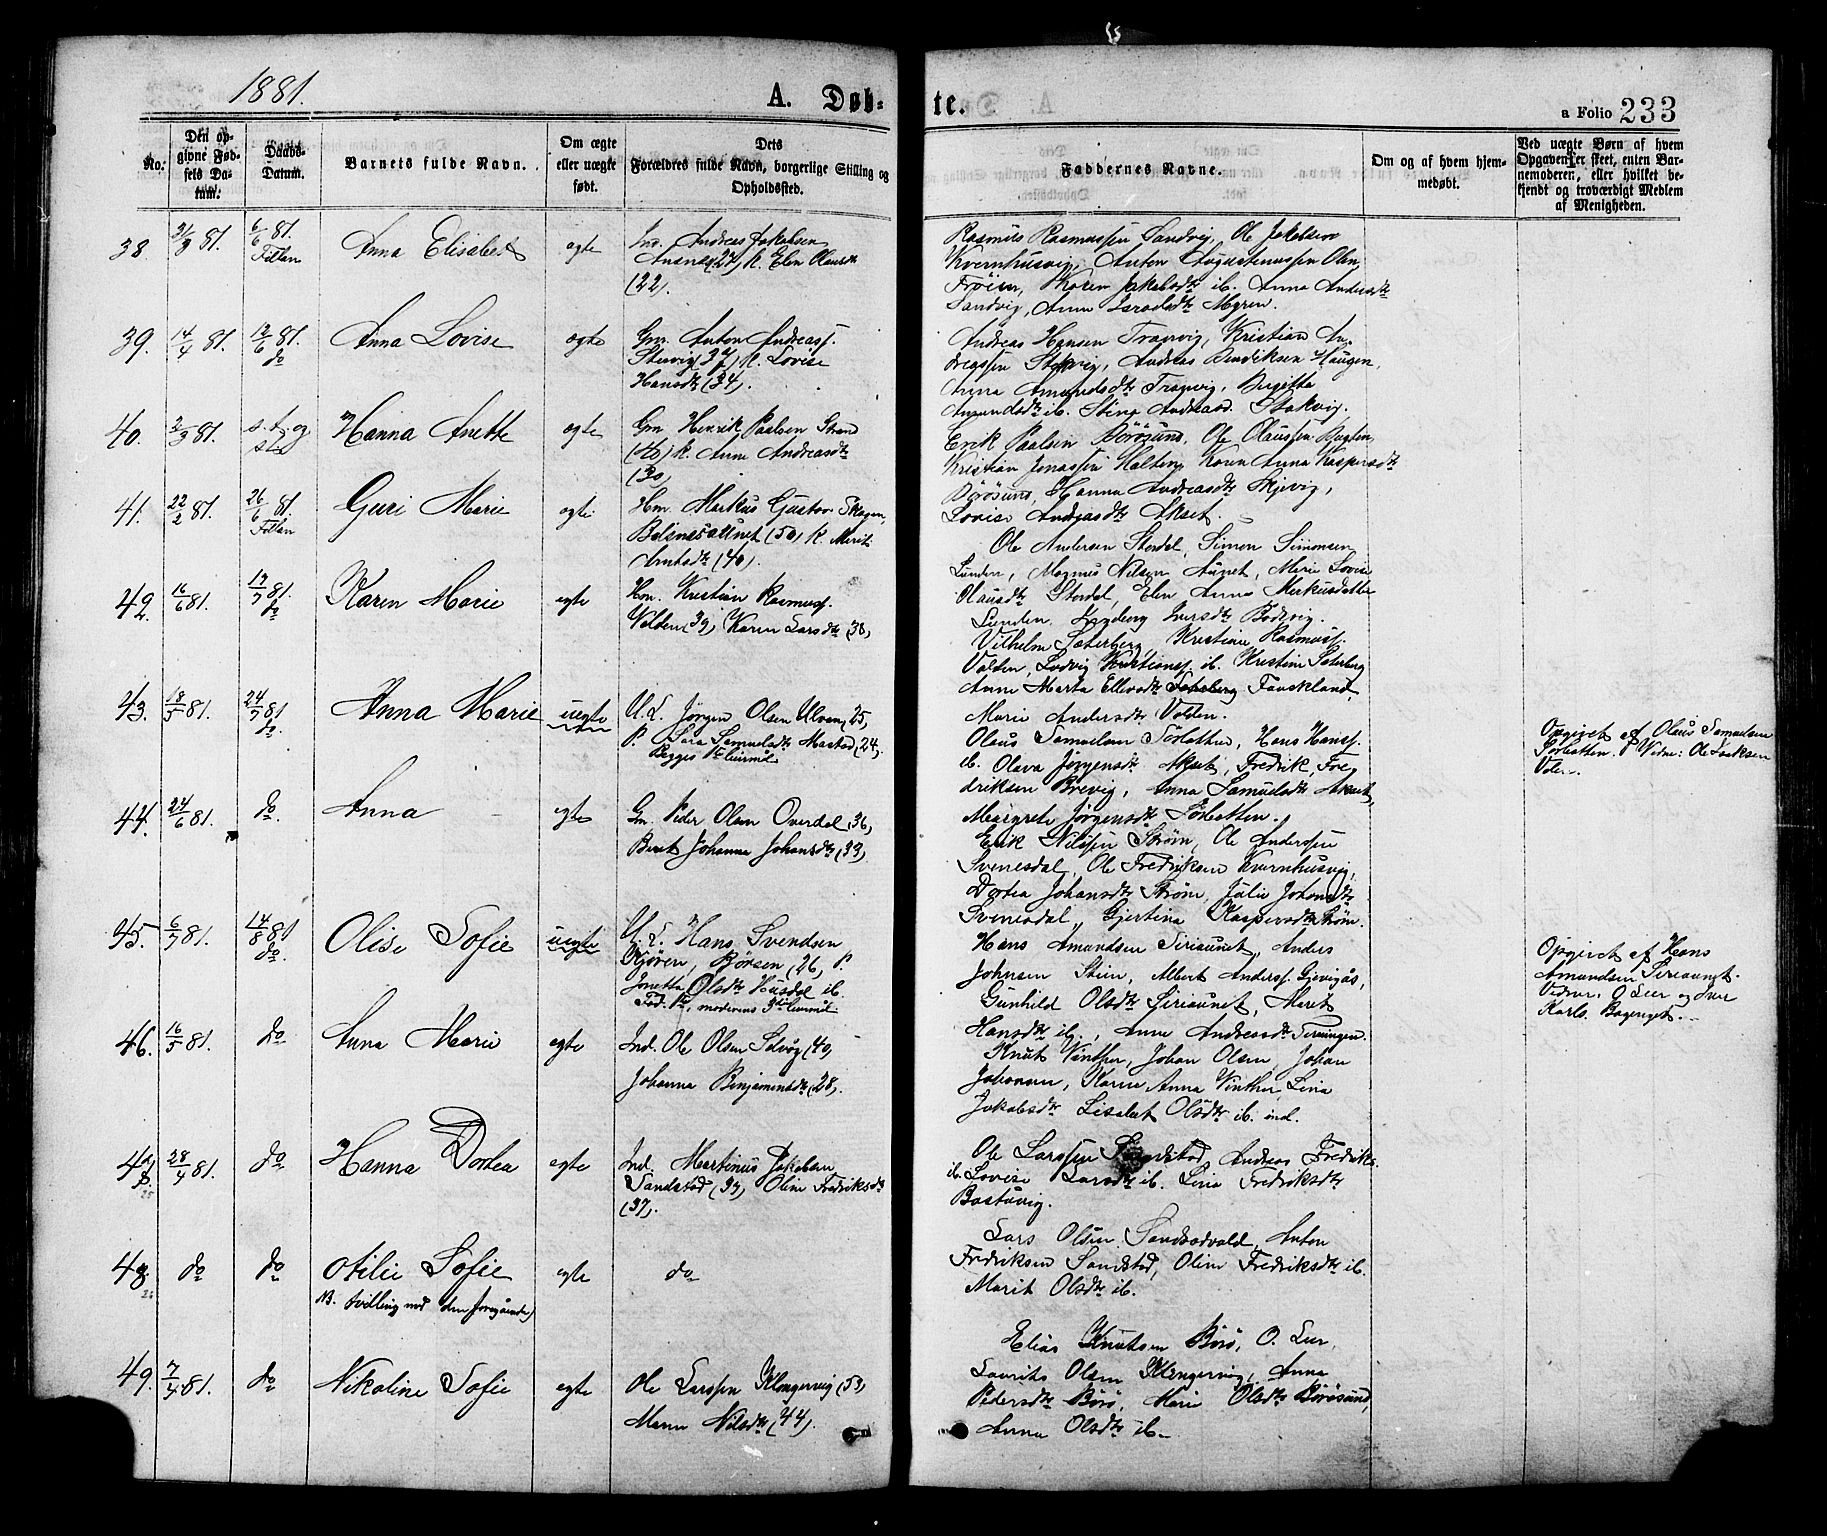 1881.
A. Døb-
te.
a Folio 233
No.
Den op-
givne Fød-
sels Da-
tum.
Daabs-
Datum.
Barnets fulde Navn.
Om ægte
eller uægte
født.
Dets
Forældres fulde Navn, borgerlige Stilling og
Opholdssted.
Faddernes Navne.
Om og af hvem hjem-
medøbt.
Ved uægte Børn af hvem
Opgaven er skeet, enten Bar-
nemoderen, eller hvilket be-
kjendt og troværdigt Medlem
af Menigheden.
38. 31/3 81. 6/6 81. Fillan
Anna Elisabet
egte
Ind. Andreas Jakobsen
(27) K. Elen Olausdtr
(22).
Rasmus Rasmussen Sandvig, Ole Jakobsen
Kvernhusvig, Anton Augustinussen Olan
Frøien, Karen Jakobsdtr ib. Anna Andersdtr
Sandvig, Anne Israelsdtr Myren.
39. 14/4 81. 12/6 81. do
Anna Lovise
egte
Gm. Anton Andreass.
Stenvig (37) K. Lovise
Hansdtr (34).
Andreas Hansen Tranvig, Kristian An-
dreassen Stokvig, Andreas Bendiksen Haugen,
Anna Amundsdtr Tranvig, Birgitta
Amundsdtr ib. Stina Andreasd. Stokvig.
40. 2/3 81. s. t. og
st.
Hanna Anette
egte
Gm Henrik Paalsen Strand
(40) K. Anne Andreasdtr
(30)
Erik Paalsen Børøsund, Ole Olaussen Bugten,
Kristian Jonassen Holten, Karen Anna Kaspersdtr
Børøsund, Hanna Andreasdtr Skjevig,
Lovise Andreasdtr Akset.
41. 22/2 81. 26/6 81. Fillan
Guri Marie
egte
Hm. Markus Gustav Skagen,
Belsnesaunet (50) K. Merit
Arntsdtr (40).
Ole Andersen Stordal, Simon Simonsen
Lunden, Magnus Nilsen Aunet, Marie Lovise
Olausdtr Stordal, Elen Anna Markusdatter
Lunden, Ingeborg Iversdtr Bodvig.
42. 16/6 81. 17/7 81. do
Karen Marie
egte
Hm. Kristian Rasmuss.
Volden (39) Karen Larsdtr (38)
Vilhelm Saterberg, Kristian Rasmuss.
Volden, Ludvig Kristianss. ib. Kristine Saterberg
Anne Marta Ellevsdtr Fauskland
Marie Andersdtr Volden.
43. 18/5 81. 24/7 81. do.
Anna Marie
uegte
U.K. Jørgen Olsen Ulvan, 25,
P. Sara Samuelsdtr Mastad (24)
Begges 1ste Leierml.
Olaus Samuelsen Sørlatten, Hans Hanss.
ib. Olava Jørgensdtr Akset, Fredrik Fre-
driksen Brevig, Anna Samuelsdtr Akset,
Margrete Jørgensdtr Sørlatten.
Opgivet af Olaus Samuelsen
Sørlatten. Vidne: Ole Isaksen
44. 24/6 81. do.
Anna
egte
Gm. Peder Olsen Overdal (36)
Berit Johanna Johansdtr (33)
Erik Nilssen Strøm, Ole Anderssen
Svenesdal, Ole Fredriksen Kvernhusvig,
Dortea Johansdtr Strøm, Julie Johansdtr
Svenesdal, Gjertina Kaspersdtr Strøm.
45. 6/7 81. 14/8 81 do.
Olise Sofie
uegte
U.K. Hans Svendsen
Kjøren, Børsen (26) P.
Jonetta Olsdtr Husdal ib.
Fad. 1ste, moderens 3die Leierml
Hans Amundsen Siriaunet, Anders
Johnsen Stein, Albert Anderss. Gjevigås,
Gunhild Olsdtr Siriaunet, Marit
Hansdtr ib., Anne Andreasdtr
Opgivet af Hans
Amundsen Siriaunet.
Vidner: O Leer og Iver
Karls.
46. 16/5 81. do
Anna Marie
egte
Ind. Ole Olsen Selvåg (40)
Johanna Benjaminsdtr (28).
Knut Vinther, Johan Olsen, Johan
Johansen, Karen Anna Vinther, Lina
Jakobsdtr Lisabet Olsdtr ib. ind.
47. 28/4 81. do
25
Hanna Dortea
egte
Ind. Martinus Jakobsen
Sandstad (34) Oline Fredriksdtr
(37).
Ole Larssen Sandstad, Andreas Fredriks.
ib. Lovise Larsdtr ib. Lina Fredriksdtr
Bastuvig.
48. do do
26
Otilie Sofie
NB. tvilling med den foregaaende)
egte
do
Lars Olsen Sandstadvald, Anton
Fredriksen Sandstad, Oline Fredriksdtr ib.
Marit Olsdtr ib.
49. 7/4 81. do
Nikoline Sofie
egte
Ole Larssen Klengervig (53)
Maren Nilsdtr (44).
Elias Knutsen Børø, O. Leer,
Laurits Olsen Klengervig, Anna
Pedersdtr Børø, Marie Olsdtr Børøsund,
Anna Olsdtr ib.